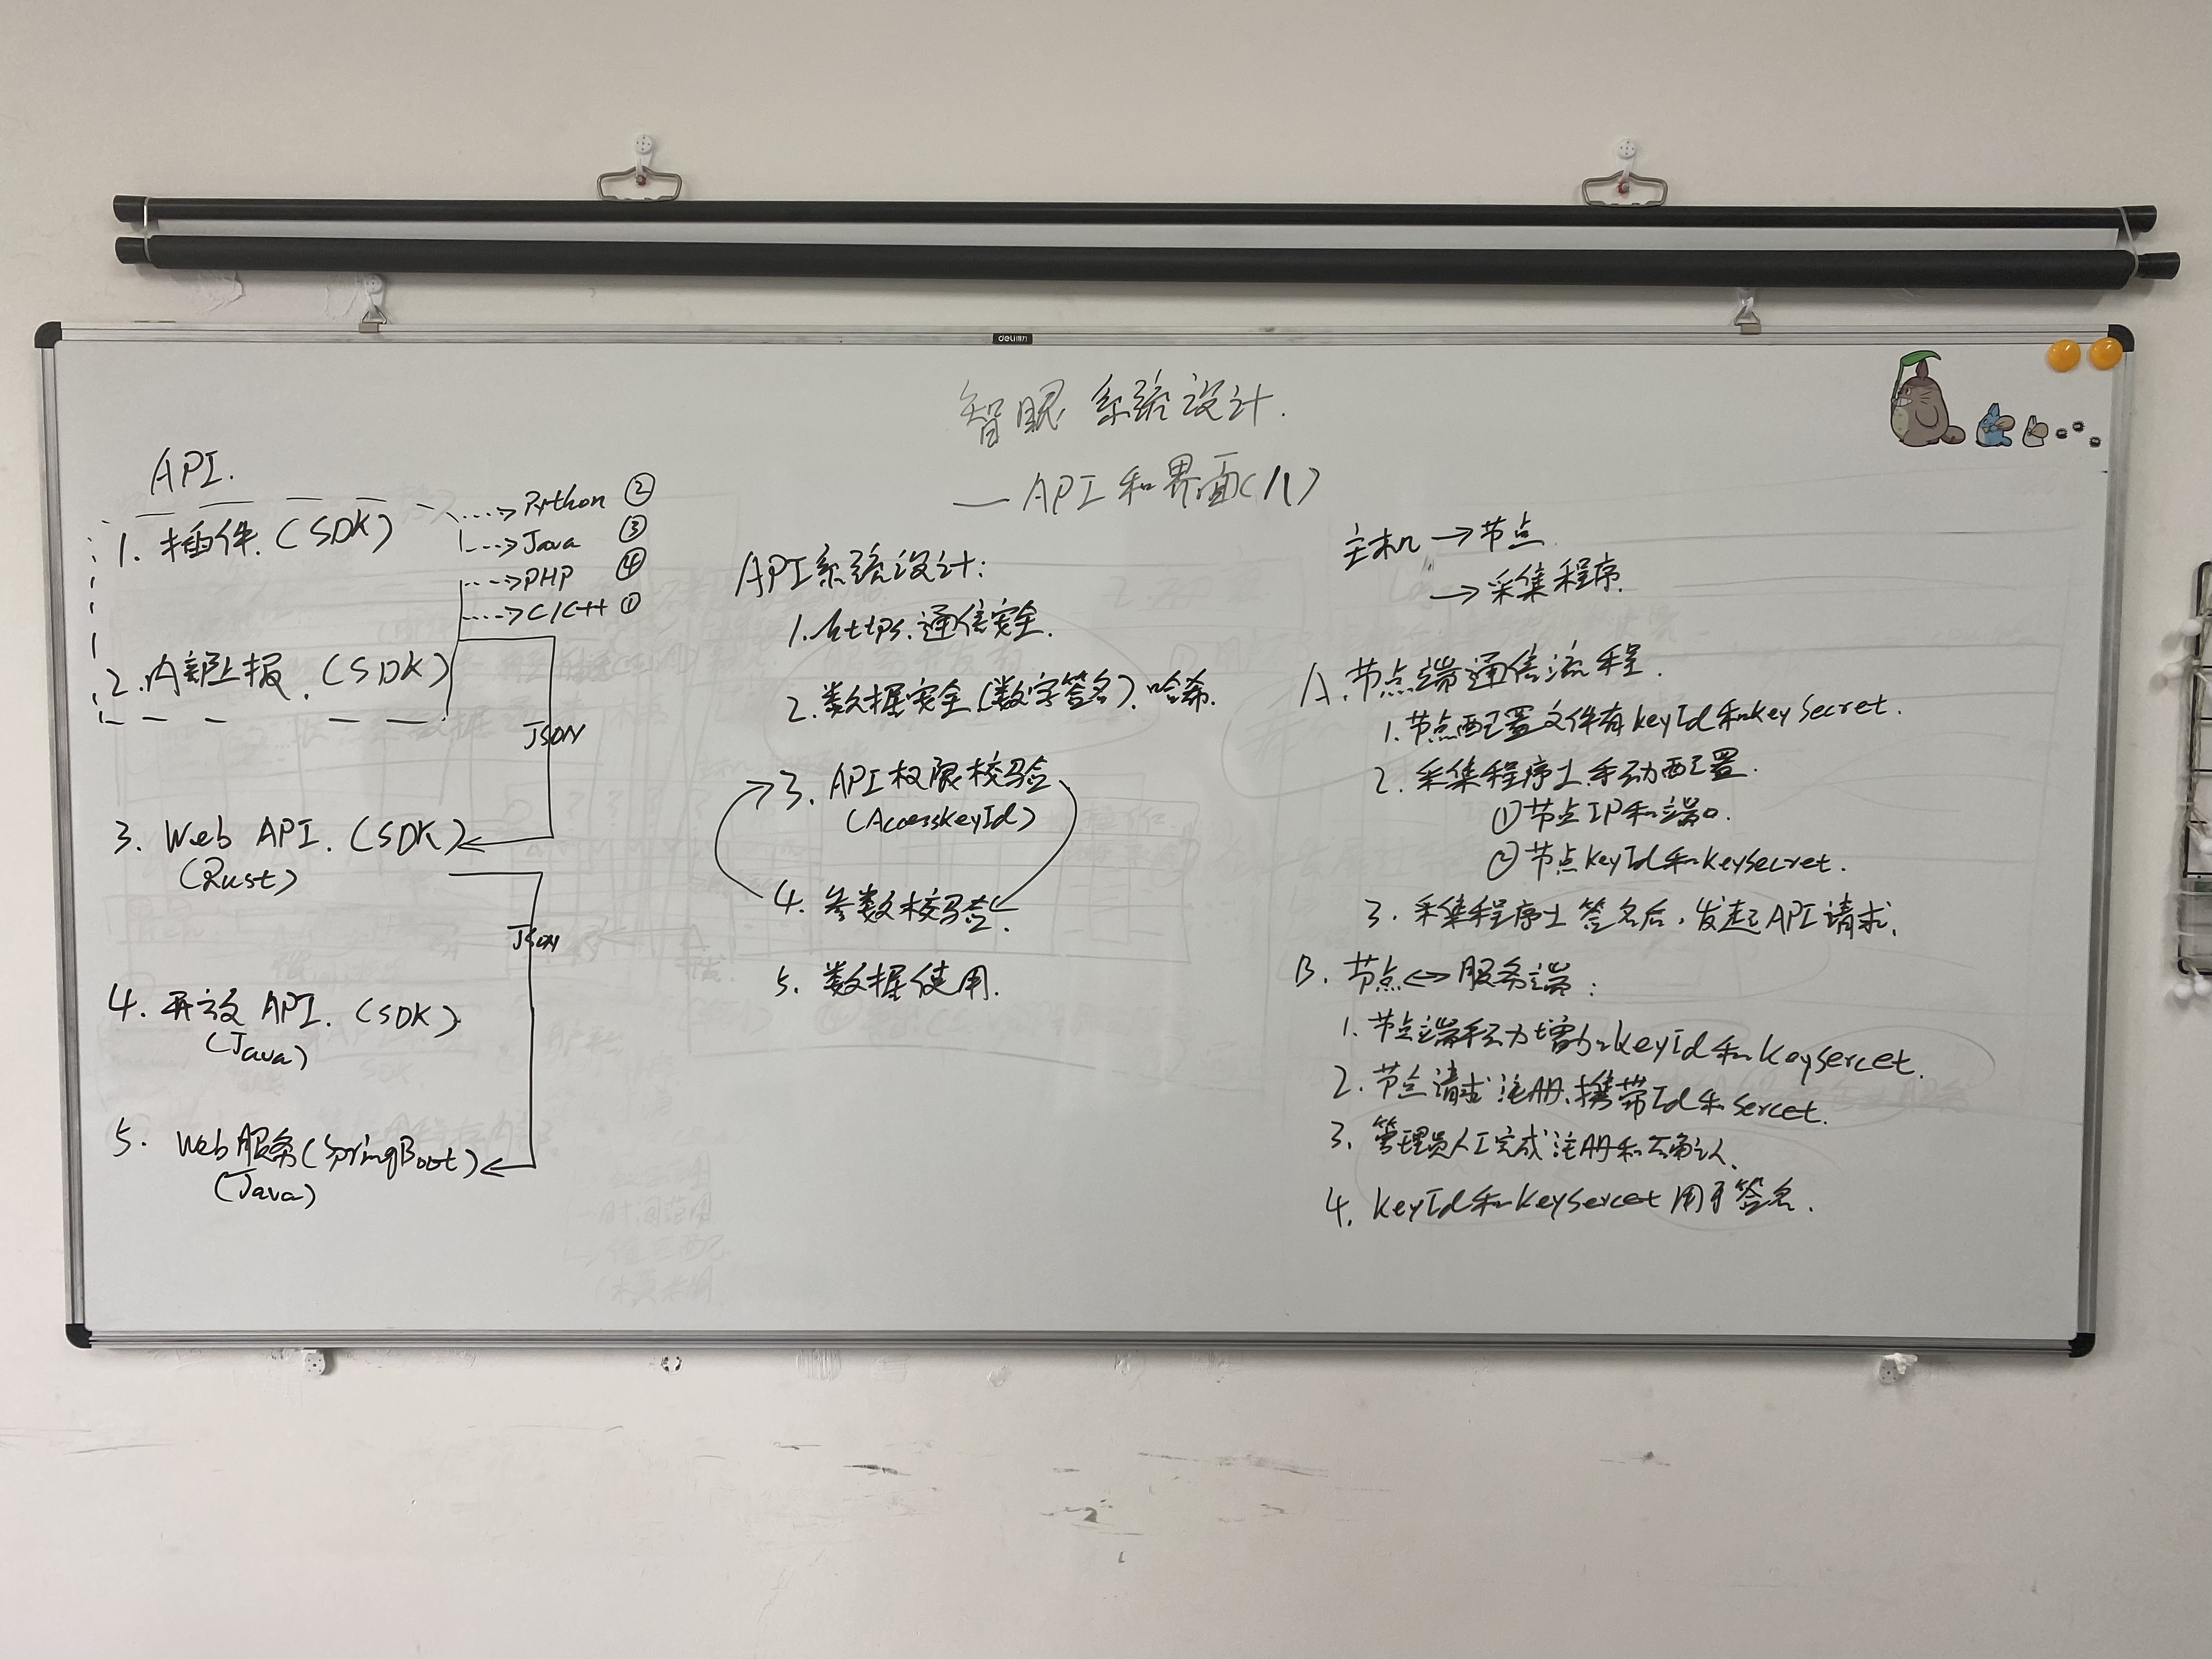 deli得力
智眼系统设计.
—API和界面(八)
API.
1. 插件.(SDK)
Python ②
Java ③
PHP ④
C/C++ ①
2.内部上报.(SDK)
JSON
3. Web API.(SDK)
(Rust)
JSON
4. 开放 API.(SDK)
(Java)
5. Web服务(SpringBoot)
(Java)
API系统设计:
1. https.通信安全.
2.数据安全(数字签名).哈希.
3. API权限校验
(AccessKeyId)
4. 参数校验.
5. 数据使用.
主机→节点
→采集程序.
A.节点端通信流程.
1.节点配置文件有keyId和keySecret.
2. 采集程序上手动配置.
①节点IP和端口.
②节点KeyId和KeySecret.
3. 采集程序上签名后,发起API请求.
B. 节点↔服务端:
1. 节点端手动增加KeyId和KeySercet.
2. 节点请求注册,携带Id和Sercet.
3. 管理员人工完成注册和确认.
4. KeyId和KeySercet用于签名.